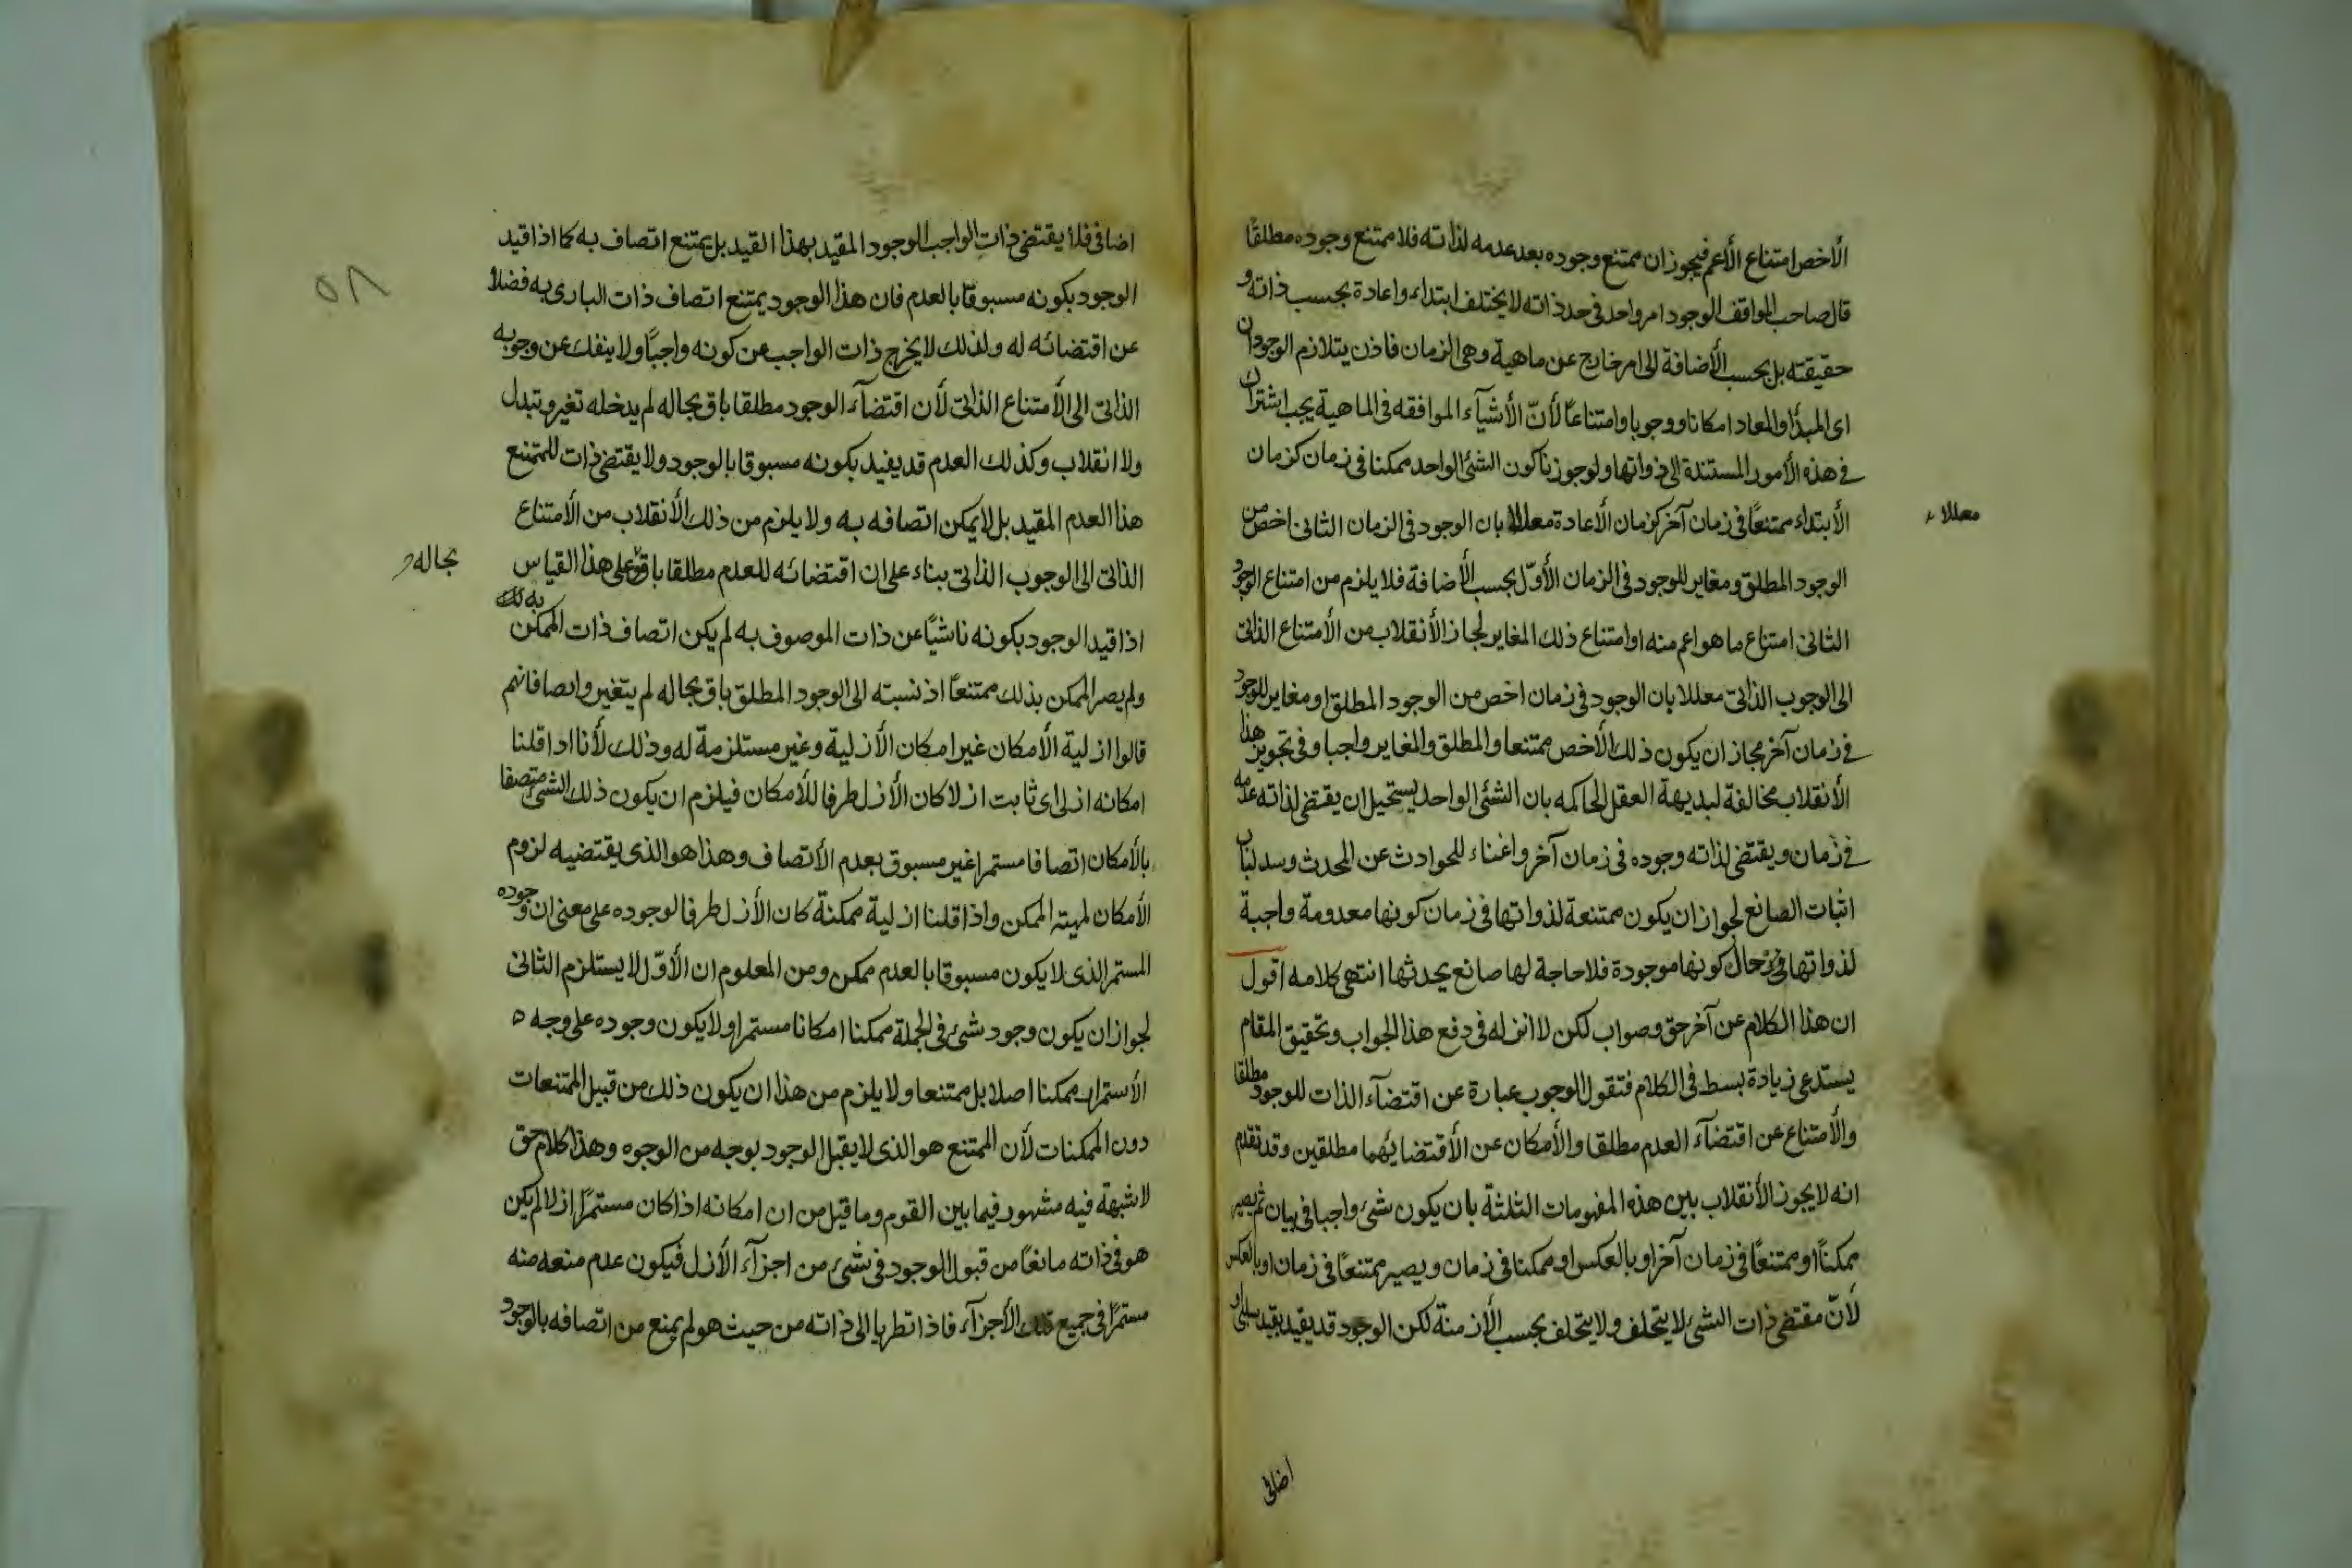 الأخص امتناع الأعم فيجوز ان يمتنع وجوده بعد عدمه لذاته فلا يمتنع وجوده مطلقًا
قال صاحب المواقف الوجود امر واحد فى حد ذاته لا يختلف ابتداء واعادة بحسب ذاته و
حقيقته بل بحسب الأضافة الى امر خارج عن ماهية وهى الزمان فاذن يتلازم الوجودان
اى المبدأ والمعاد امكانا ووجوبا وامتناعًا لأنّ الأشيآء الموافقه فى الماهية يجب اشتراك
فى هذه الأمور المستندة الى ذواتها ولو جوزنا كون الشئ الواحد ممكنا فى زمان كزمان
الأبتداء ممتنعًا فى زمان آخر كزمان الأعادة معللا بان الوجود فى الزمان الثانى اخص من
معللا
الوجود المطلق ومغاير للوجود فى الزمان الأوّل بحسب الأضافة فلا يلزم من امتناع الوجود
الثانى امتناع ما هو اعم منه او امتناع ذلك المغاير لجاز الأنقلاب من الأمتناع الذاتى
الى الوجوب الذاتى معللا بان الوجود فى زمان اخص من الوجود المطلق او مغاير للوجود
فى زمان آخر فجاز ان يكون ذلك الأخص ممتنعا والمطلق والمغاير واجبا وفى تجويز هذا
الأنقلاب مخالفة لبديهة العقل الحاكمه بان الشئ الواحد يستحيل ان يقتضى لذاته عدمه
فى زمان ويقتضى لذاته وجوده فى زمان آخر واغناء للحوادث عن المحدث وسد لباب
اثبات الصانع لجواز ان يكون ممتنعة لذواتها فى زمان كونها معدومة واجبة
لذواتها فى حال كونها موجودة فلا حاجة لها صانع يحدثها انتهى كلامه اقول
ان هذا الكلام عن آخر حق وصواب لكن لا اثر له فى دفع هذا الجواب وتحقيق المقام
يستدعى زيادة بسط فى الكلام فتقول الوجوب عبارة عن اقتضآء الذات للوجود مطلقا
والأمتناع عن اقتضآء العدم مطلقا والأمكان عن الأقتضايهما مطلقين وقد تقدم
انه لا يجوز الأنقلاب بين هذه المفهومات الثلثة بان يكون شئ واجبا فى بيان ثم يصير
ممكنًا او ممتنعًا فى زمان آخر او بالعكس او ممكنا فى زمان ويصير ممتنعًا فى زمان او بالعكس
لأنّ مقتضى ذات الشئ لا يتخلف ولا يتخلف بحسب الأزمنة لكن الوجود قد يقيد بقيد سلبى او
اضافى
٥٨
اضافى فلا يقتضى ذات الواجب الوجود المقيد بهذا القيد بل يمتنع اتصاف به كما اذا قيد
الوجود بكونه مسبوقا بالعدم فان هذا الوجود يمتنع اتصاف ذات البارى به فضلا
عن اقتضائه له ولذلك لا يخرج ذات الواجب عن كونه واجبًا ولا ينفك عن وجوبه
الذاتى الى الأمتناع الذاتى لأن اقتضآء الوجود مطلقا باق بحاله لم يدخله تغير وتبدل
ولا انقلاب وكذلك العدم قد يفيد بكونه مسبوقا بالوجود ولا يقتضى ذات الممتنع
هذا العدم المقيد بل لا يمكن اتصافه به ولا يلزم من ذلك الأنقلاب من الأمتناع
الذاتى الى الوجوب الذاتى بناء على ان اقتضائه للعدم مطلقا باق وعلى هذا القياس
بحاله
اذا قيد الوجود بكونه ناشيًا عن ذات الموصوف به لم يكن اتصاف ذات الممكن به
ولم يصر الممكن بذلك ممتنعًا اذ نسبته الى الوجود المطلق باق بحاله لم يتغير وايصافانهم
قالوا ازلية الأمكان غير امكان الأزلية وغير مستلزمة له وذلك لأنا اذا قلنا
امكانه ازلى اى ثابت ازلا كان الأزل طرفا للأمكان فيلزم ان يكون ذلك الشئ متصفا
بالأمكان اتصافا مستمرا غير مسبوق بعدم الأتصاف وهذا هو الذى يقتضيه لزوم
الأمكان لمهية الممكن واذا قلنا ازلية ممكنة كان الأزل طرفا لوجوده على معنى ان وجوده
المستمر الذى لا يكون مسبوقا بالعدم ممكن ومن المعلوم ان الأوّل لا يستلزم الثانى
لجواز ان يكون وجود شئ فى الجملة ممكنا امكانا مستمرا ولا يكون وجوده على وجه
الأستمرار ممكنا اصلا بل ممتنعا ولا يلزم من هذا ان يكون ذلك من قبيل الممتنعات
دون الممكنات لأن الممتنع هو الذى لا يقبل الوجود بوجه من الوجوه وهذا كلام حق
لا شبهة فيه مشهور فيما بين القوم وما قيل من ان امكانه اذا كان مستمرًا ازلا لم يكن
هو فى ذاته مانعًا من قبول الوجود فى شئ من اجزآء الأزل فيكون عدم منعه منه
مستمرًا فى جميع تلك الأجزآء فاذا نظر يا الى ذاته من حيث هو لم يمنع من اتصافه بالوجود